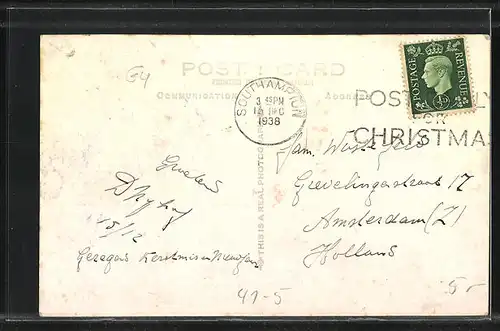 G4
POST CARD
COMMUNICATION
ADDRESS
SOUTHAMPTON
3 45PM
DEC
1938
POST EARLY
FOR
CHRISTMAS
POSTAGE REVENUE
½D
THIS IS A REAL PHOTOGRAPH
Fam.
Grevelingastraat 17
Amsterdam (Z)
Holland
Groeten
15/12
Kerstmis en Nieuwjaar
41-5
5-